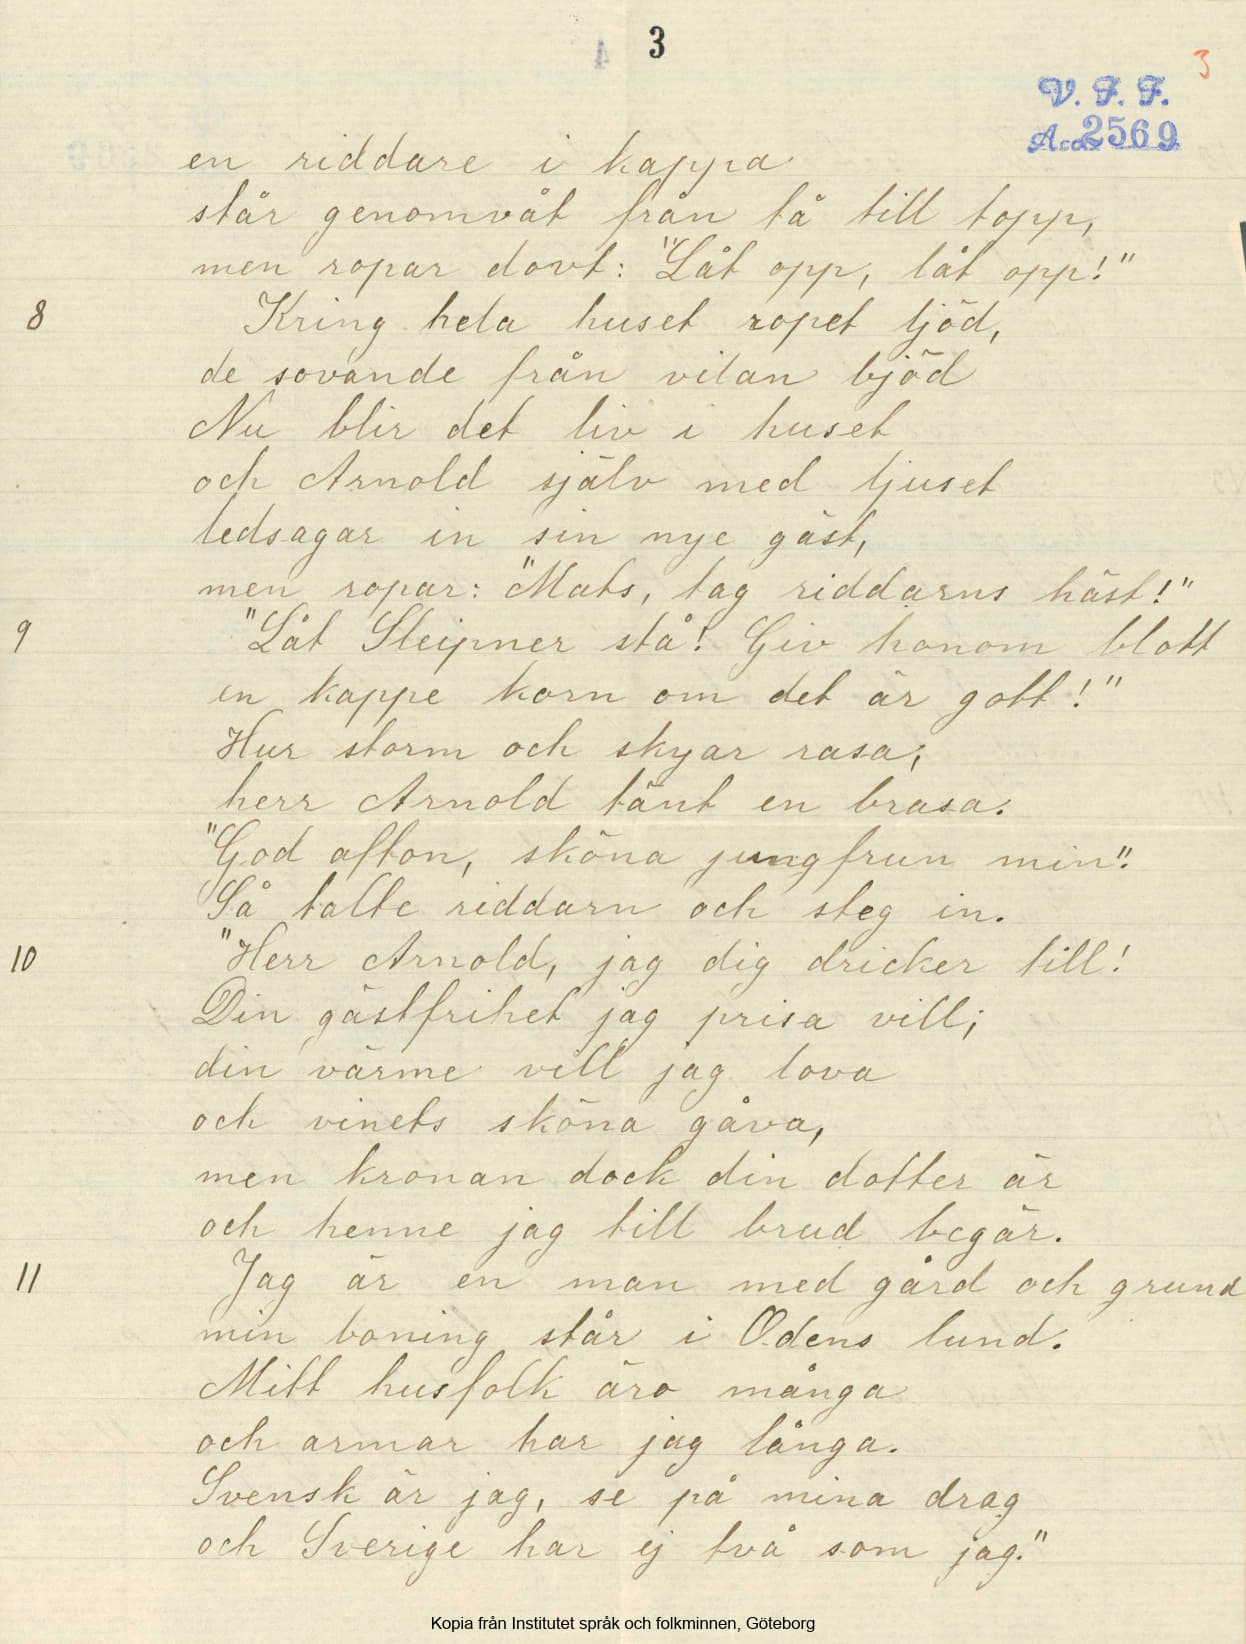 3
3
V. F. F.
Acc. 2569
en riddare i kappa
står genomvåt från tå till topp,
men ropar dovt: "Låt opp, låt opp!"
8 Kring hela huset ropet ljöd,
de sovande från vilan bjöd
Nu blir det liv i huset
och Arnold själv med ljuset
ledsagar in sin nye gäst,
men ropar: "Mats, tag riddarns häst!"
9 "Låt Sleipner stå! Giv honom blott
en kappe korn om det är gott!"
Hur storm och skyar rasa;
herr Arnold tänt en brasa.
"God afton, sköna jungfrun min".
Så talte riddarn och steg in.
10 "Herr Arnold, jag dig dricker till!
Din gästfrihet jag prisa vill;
din värme vill jag lova
och vinets sköna gåva,
men kronan dock din dotter är
och henne jag till brud begär.
11 Jag är en man med gård och grund
min boning står i Odens lund.
Mitt husfolk äro många
och armar har jag långa.
Svensk är jag, se på mina drag
och Sverige har ej två som jag."
Kopia från Institutet språk och folkminnen, Göteborg